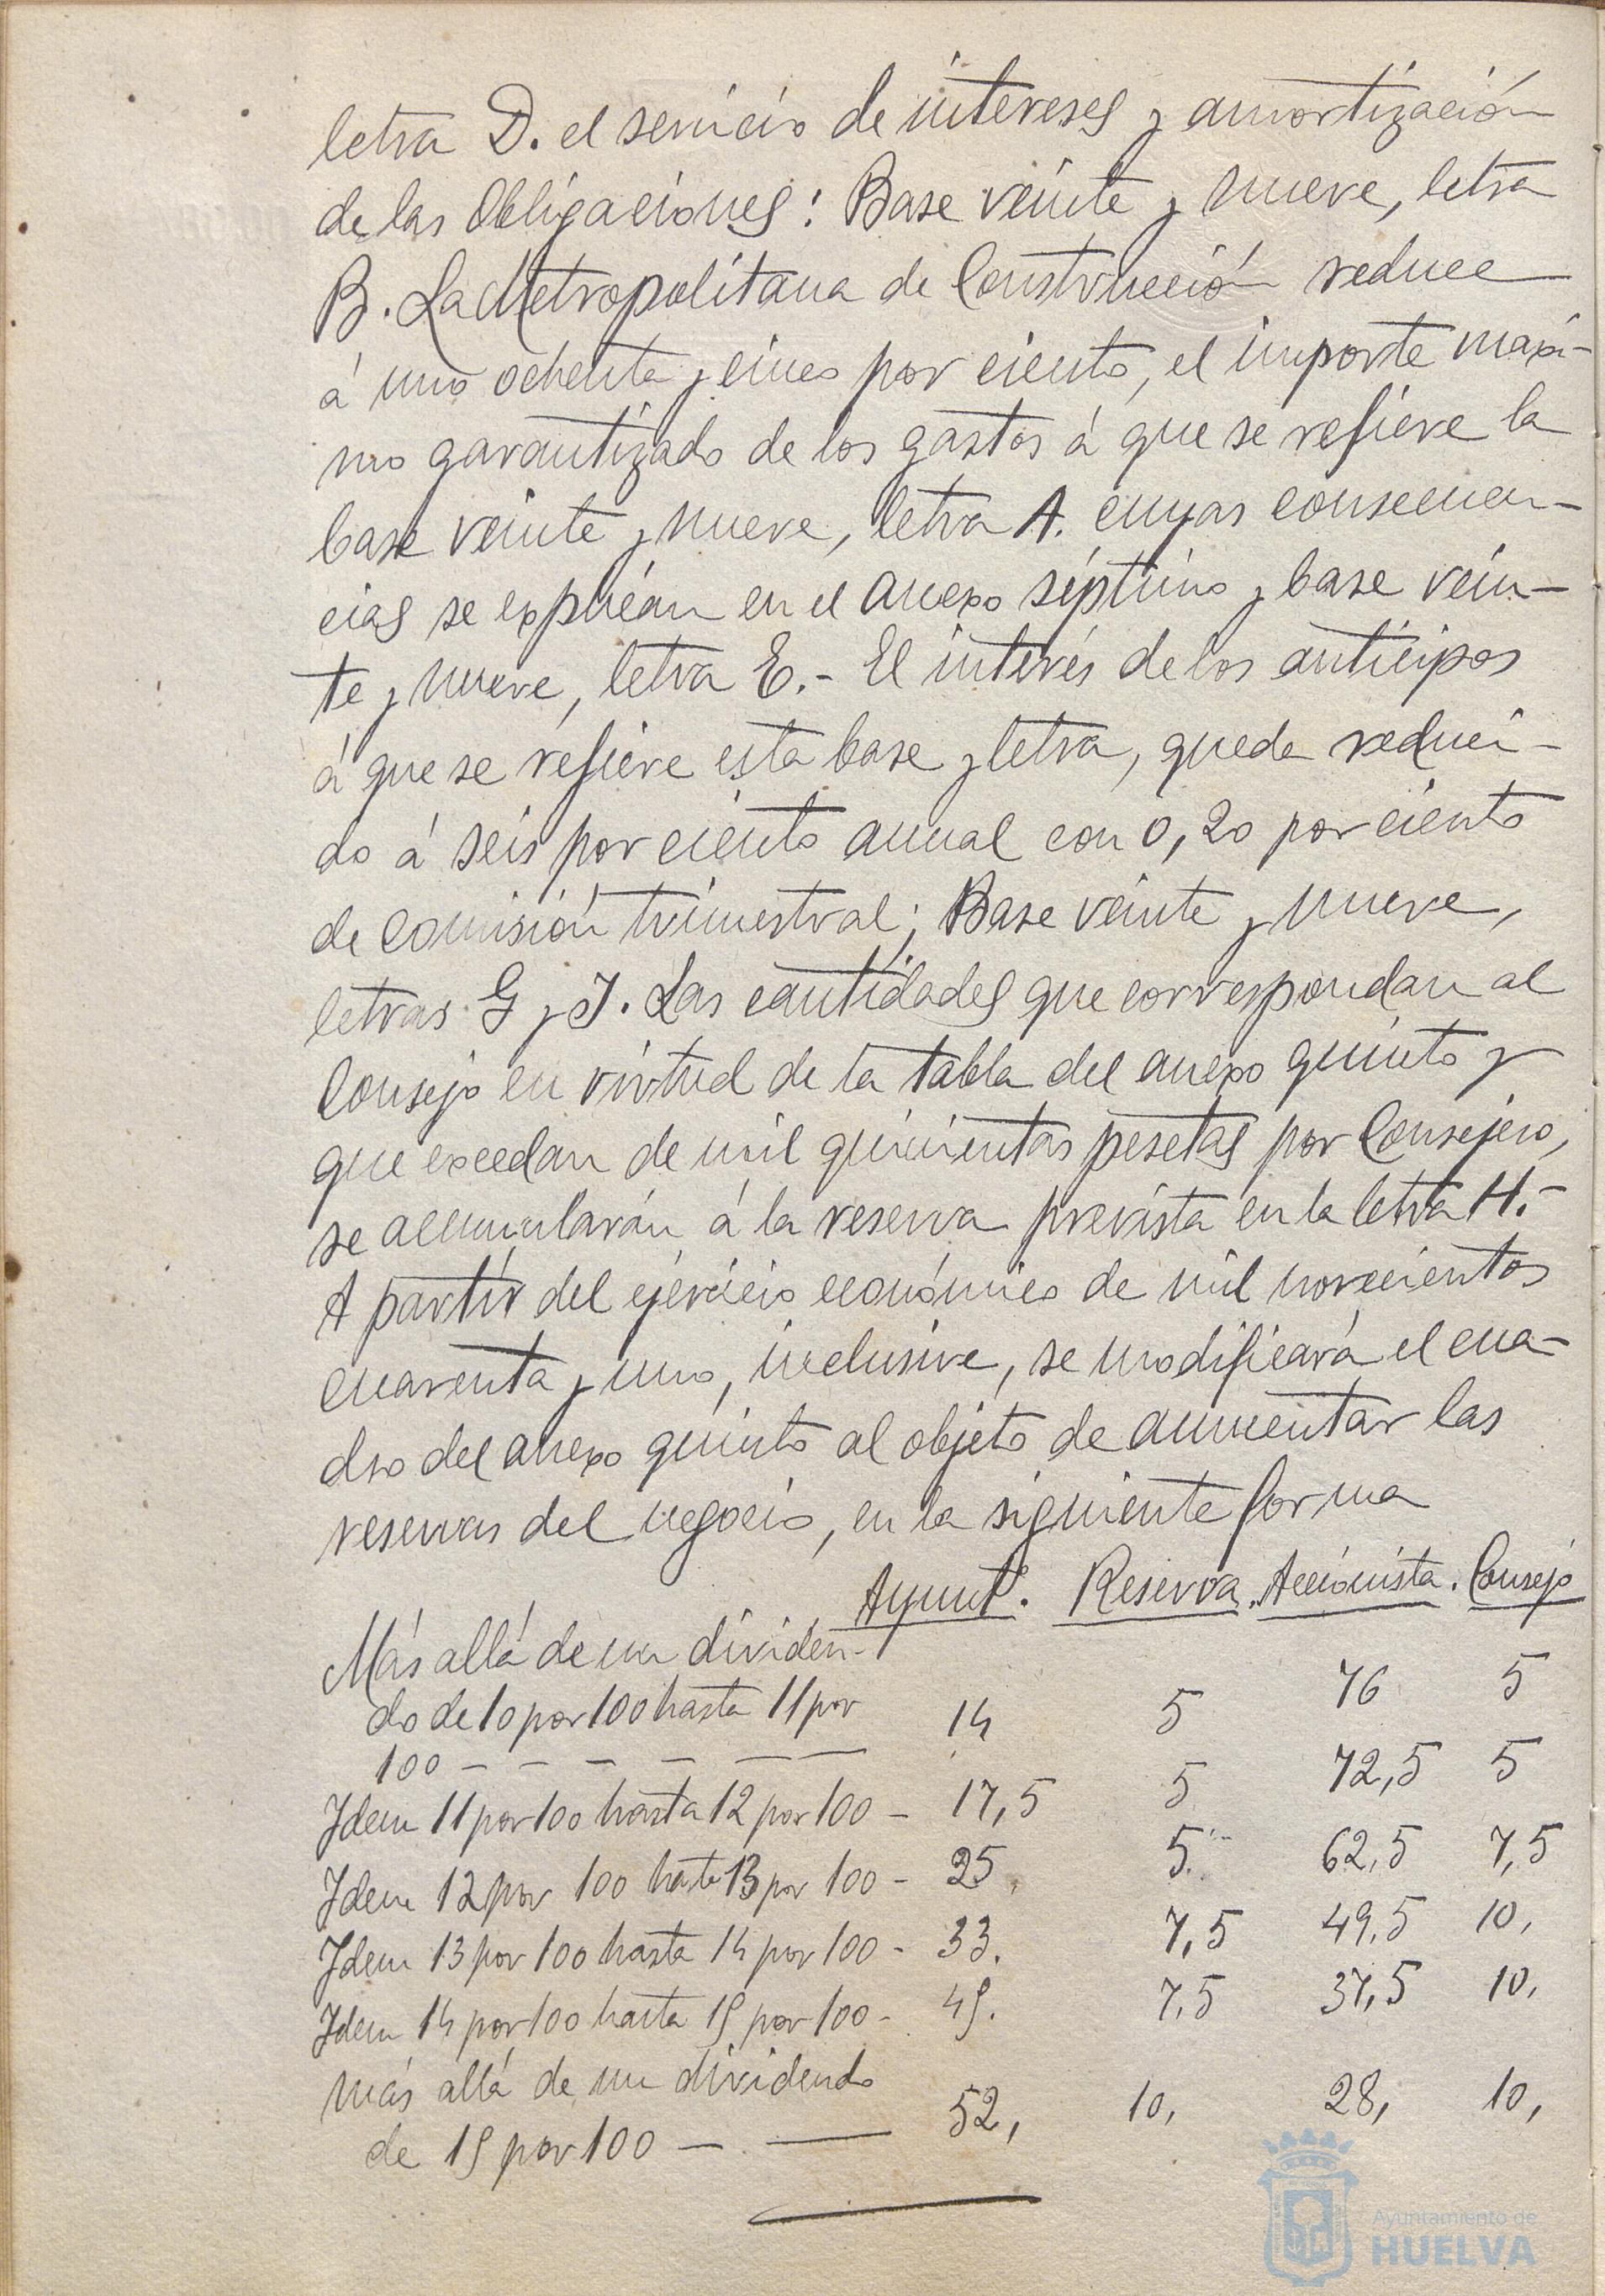 letra D. el servicio de intereses y amortización
de las Obligaciones: Base veinte y nueve, letra
B. La Metropolitana de Construcción reduce
á uno ochenta y cinco por ciento, el importe maxi-
mo garantizado de los gastos á que se refiere la
base veinte y nueve, letra A. cuyas consecuen-
cias se expresan en el anexo séptimo y base vein-
te y nueve, letra E.- El interés de los anticipos
á que se refiere esta base y letra, queda reduci-
do á seis por ciento anual con 0,20 por ciento
de comisión trimestral; Base veinte y nueve,
letras G y J. Las cantidades que correspondan al
Consejo en virtud de la tabla del anexo quinto y
que excedan de mil quinientas pesetas por Consejero,
se acumularán á la reserva prevista en la letra H.-
A partir del ejercicio económico de mil novecientos
cuarenta y uno, inclusive, se modificará el cua-
dro del anexo quinto al objeto de aumentar las
reservas del negocio, en la siguiente forma
Ayunt°. Reserva. Accionista. Consejo
Más allá de un dividen-
do de 10 por 100 hasta 11 por
100 - - - - - - 14 5 76 5
Idem 11 por 100 hasta 12 por 100 - 17,5 5 72,5 5
Idem 12 por 100 hata 13 por 100 - 25, 5. 62,5 7,5
Idem 13 por 100 hasta 14 por 100 - 33. 7,5 49,5 10,
Idem 14 por 100 hasta 15 por 100 - 45. 7,5 37,5 10,
más allá de un dividendo
de 15 por 100 - — 52, 10, 28, 10,
Ayuntamiento de
HUELVA